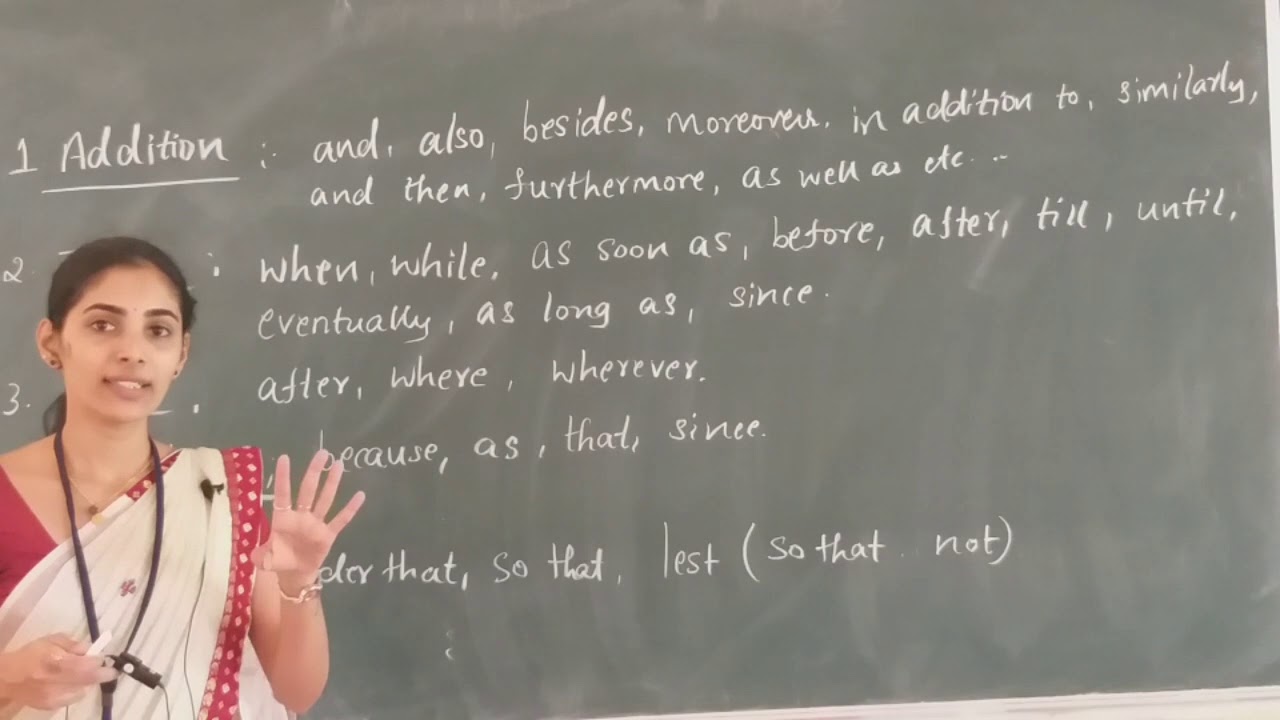 1 Addition :- and, also, besides, moreover, in addition to, similarly,
and then, furthermore, as well as etc...
2. : when, while, as soon as, before, after, till, until,
eventually, as long as, since.
3. . after, where, wherever.
because, as, that, since.
that, so that, lest (so that not)
: